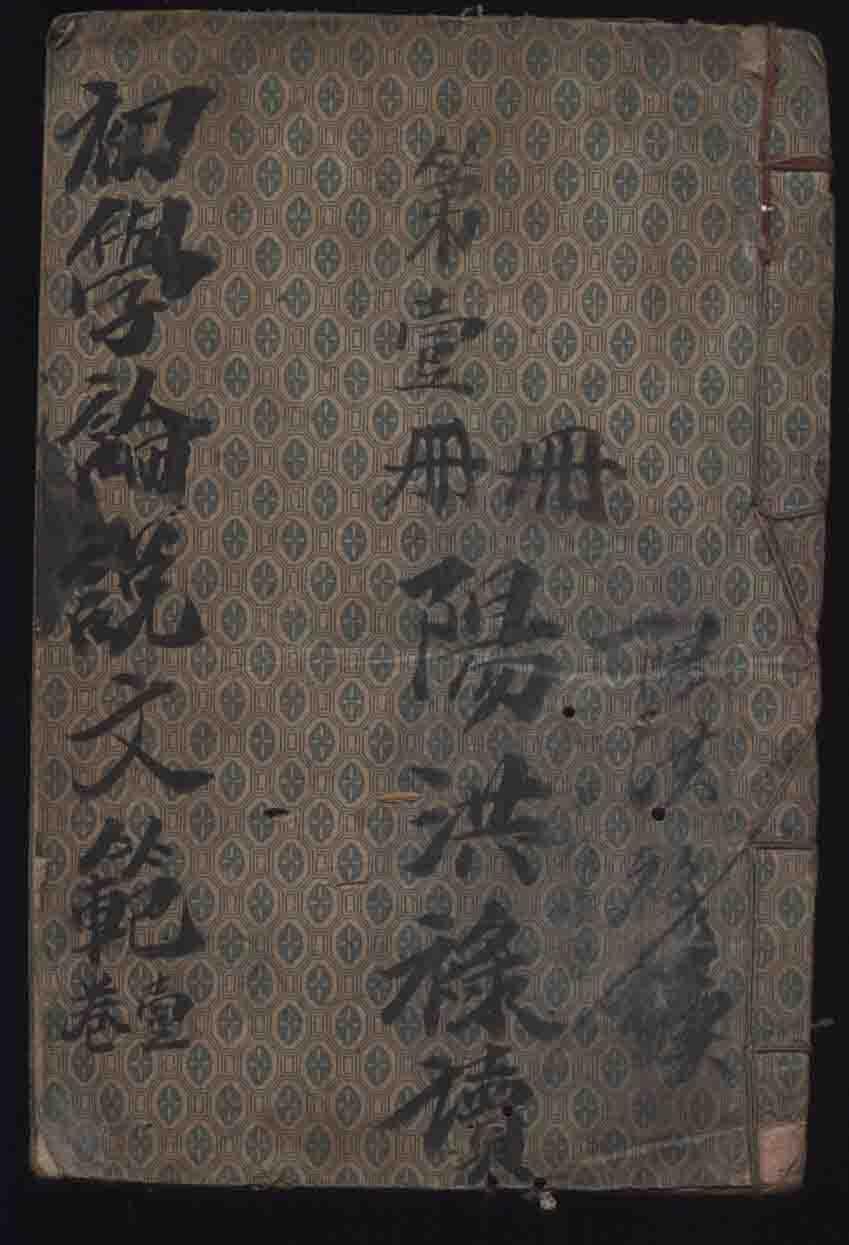 冊
第壹冊陽洪祿讀
初學論說文範壹卷